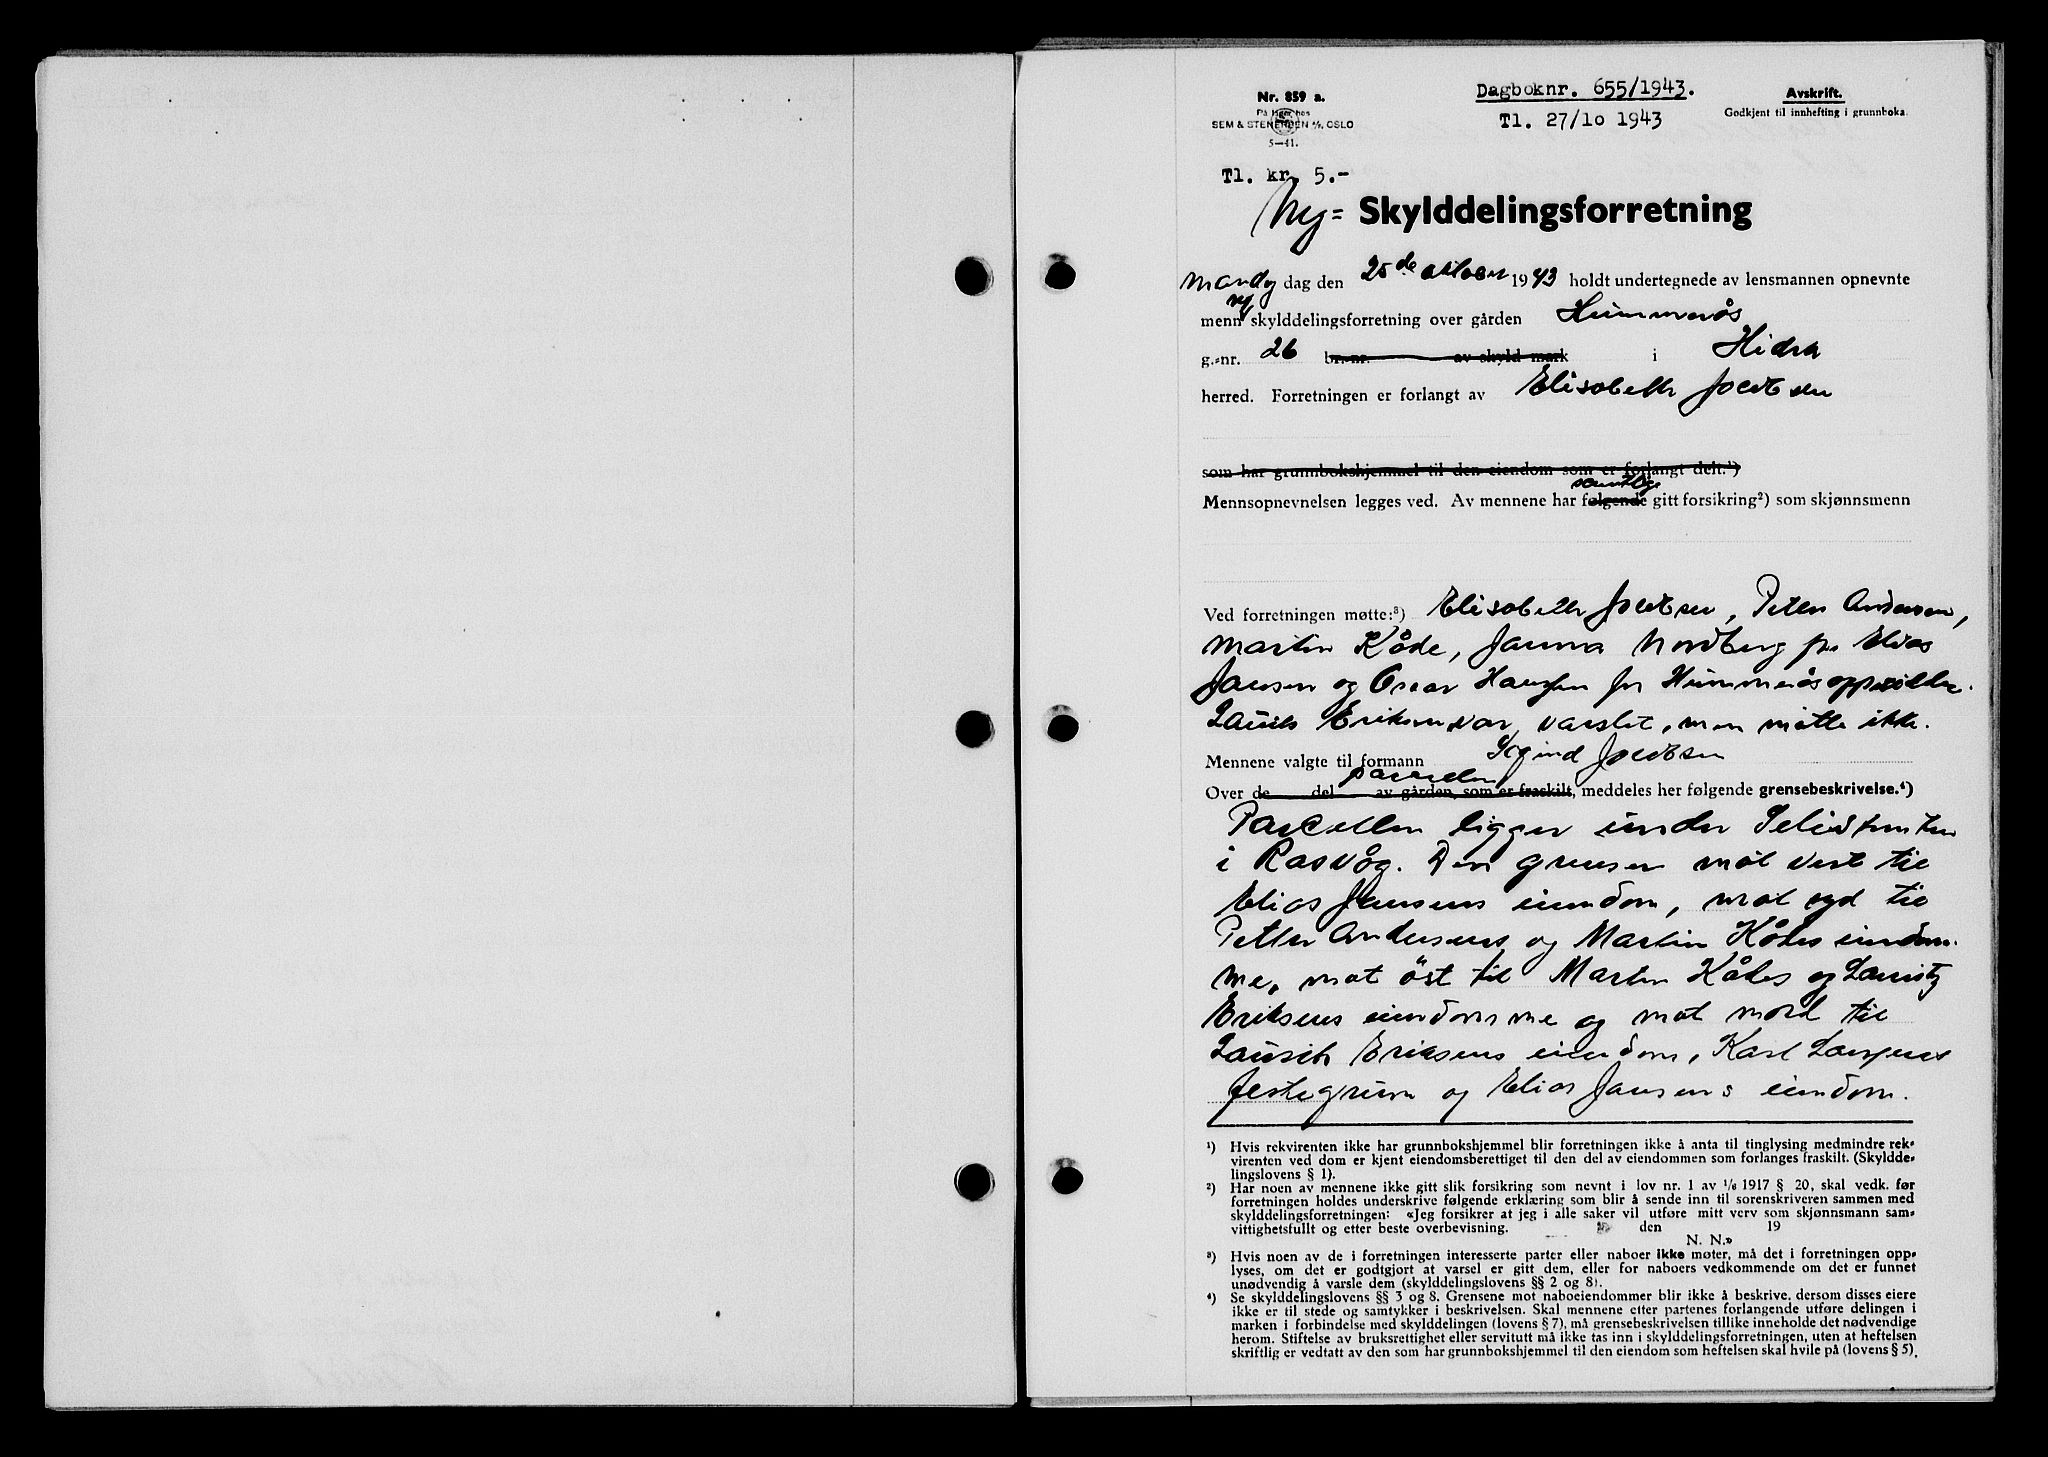 Nr. 859 a.
På lager hos
SEM & STENERSEN A/S, OSLO
5—41.
Dagboknr. 655/1943.
Tl. 27/10 1943
Avskrift.
Godkjent til innhefting i grunnboka.
Tl. kr. 5.-
Ny= Skylddelingsforretning
mandg dag den 25de oktober 1943 holdt undertegnede av lensmannen opnevnte
menn ny skylddelingsforretning over gården Hummerås
g.-nr. 26 br.-nr. av skyld mark i Hidra
herred. Forretningen er forlangt av Elisabeth Jacobsen
som har grunnbokshjemmel til den eiendom som er forlangt delt.¹)
samtlige
Mennsopnevnelsen legges ved. Av mennene har følgende gitt forsikring²) som skjønnsmenn
Ved forretningen møtte:³) Elisabeth Jacobsen, Petter Andersen,
Martin Kåde, Janna Nordberg for Elias
Jansen og Oscar Hansen for Hummerås oppsittere.
Lauritz Eriksen var varslet, men møtte ikke.
Mennene valgte til formann Sigurd Jacobsen
parcellen
Over de del av gården, som er fraskilt, meddeles her følgende grensebeskrivelse.⁴)
Parcellen ligger under
i Rasvåg. Den grenser mot vest til
Elias Jansens eiendom, mot syd til
Petter Andersens og Martin Kådes eiendom-
me, mot öst til Martin Kådes og Lauritz
Eriksens eiendomme og mot nord til
Lauritz Eriksens eiendom, Karl Larsens
festegrunn og Elias Jansens eiendom.
¹) Hvis rekvirenten ikke har grunnbokshjemmel blir forretningen ikke å anta til tinglysing medmindre rek-
virenten ved dom er kjent eiendomsberettiget til den del av eiendommen som forlanges fraskilt. (Skyldde-
lingslovens § 1).
²) Har noen av mennene ikke gitt slik forsikring som nevnt i lov nr. 1 av 1/6 1917 § 20, skal vedk. før
forretningen holdes underskrive følgende erklæring som blir å sende inn til sorenskriveren sammen med
skylddelingsforretningen: «Jeg forsikrer at jeg i alle saker vil utføre mitt verv som skjønnsmann sam-
vittighetsfullt og etter beste overbevisning. den 19
N. N.»
³) Hvis noen av de i forretningen interesserte parter eller naboer ikke møter, må det i forretningen opp-
lyses, om det er godtgjort at varsel er gitt dem, eller for naboers vedkommende om det er funnet
unødvendig å varsle dem (skylddelingslovens §§ 2 og 8).
⁴) Se skylddelingslovens §§ 3 og 8. Grensene mot naboeiendommer blir ikke å beskrive, dersom disses eiere
ikke er til stede og samtykker i beskrivelsen. Skal mennene etter partenes forlangende utføre delingen i
marken i forbindelse med skylddelingen (lovens § 7), må grensebeskrivelsen tillike inneholde det nødvendige
herom. Stiftelse av bruksrettighet eller servitutt må ikke tas inn i skylddelingsforretningen, uten at heftelsen
skriftlig er vedtatt av den som har grunnbokshjemmel til den eiendom som heftelsen skal hvile på (lovens § 5).